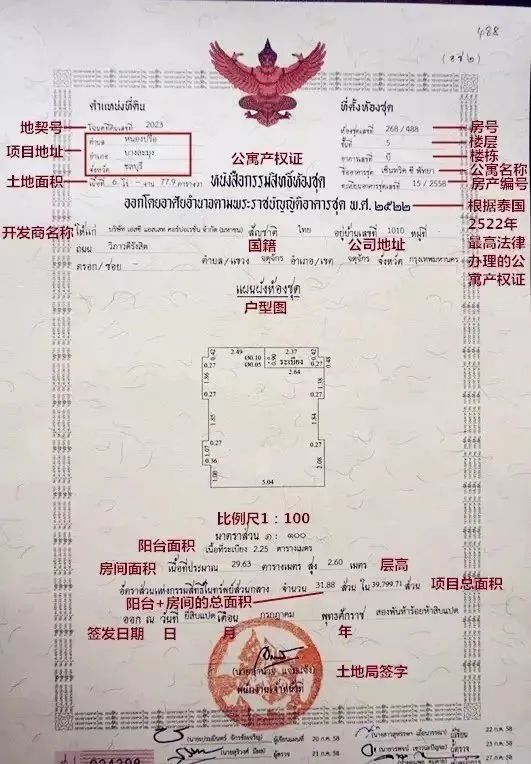 488
(อ.ช.๒)
ตำแหน่งที่ดิน
ที่ตั้งห้องชุด
地契号
โฉนดที่ดินเลขที่ 2023
ห้องชุดเลขที่ 268/488
房号
项目地址
ตำบล หนองปรือ
ชั้นที่ 5
楼层
อำเภอ บางละมุง
อาคารเลขที่ บี
楼栋
จังหวัด ชลบุรี
公寓产权证
ชื่ออาคารชุด เซ็นทริค ซี พัทยา
公寓名称
土地面积
เนื้อที่ 6 ไร่ - งาน 77.9 ตารางวา
ทะเบียนอาคารชุดเลขที่ 15/2558
房产编号
หนังสือกรรมสิทธิ์ห้องชุด
ออกโดยอาศัยอำนาจตามพระราชบัญญัติอาคารชุด พ.ศ. ๒๕๒๒
根据泰国
2522年
最高法律
办理的公
寓产权证
开发商名称
ให้แก่ บริษัท เอสซี แอสเสท คอร์ปอเรชั่น จำกัด (มหาชน) สัญชาติ ไทย อยู่บ้านเลขที่ 1010 หมู่ที่
国籍
公司地址
ถนน วิภาวดีรังสิต
ตรอก/ซอย ตำบล/แขวง จตุจักร อำเภอ/เขต จตุจักร จังหวัด กรุงเทพมหานคร
แผนผังห้องชุด
户型图
2.49
2.37
0.42
Ø0.10
Ø0.05
0.90
ระเบียง
0.42
0.48
0.27
2.64
0.27
1.86
1.38
0.27
0.27
1.85
1.84
0.27
0.27
1.07
0.36
2.08
1.00
5.04
比例尺1：100
มาตราส่วน ๑ : ๑๐๐
阳台面积
เนื้อที่ระเบียง 2.25 ตารางเมตร
房间面积
เนื้อที่ประมาณ 29.63 ตารางเมตร สูง 2.60 เมตร
层高
อัตราส่วนแห่งกรรมสิทธิ์ในทรัพย์ส่วนกลาง จำนวน 31.88 ส่วน ใน 39,799.71 ส่วน
项目总面积
阳台+房间的总面积
ออก ณ วันที่ ยี่สิบแปด เดือน กรกฎาคม พุทธศักราช สองพันห้าร้อยห้าสิบแปด
签发日期 日 月 年
土地局签字
พนักงานเจ้าหน้าที่
ผู้เขียนแผนที่ 20 ก.ค. 58
ผู้เขียน 22 ก.ค. 58
ผู้ตรวจ 23 ก.ค. 58
ผู้ตรวจ 23 ก.ค. 58
27 ก.ค. 58